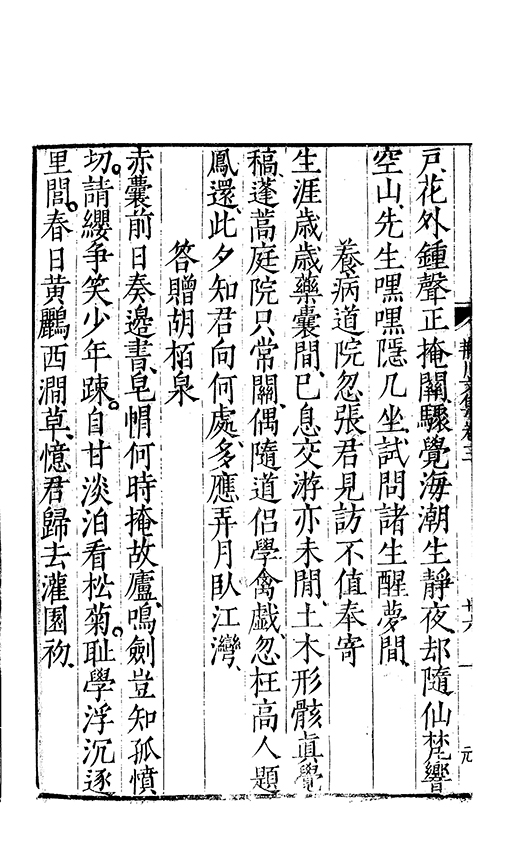 戸花外鍾聲正掩關驟覺海潮生靜夜却隨仙梵響
空山先生嘿嘿隱几坐試問諸生醒夢間
養病道院忽張君見訪不值奉寄
生涯歳歳藥囊間已息交游亦未閒土木形骸真覺
稿蓬蒿庭院只常關偶隨道侶學禽戱忽枉高人題
鳳還此夕知君向何處多應弄月臥江灣
答贈胡栢泉
赤囊前日奏邊書皂帽何時掩故廬鳴劍豈知孤憤
切請纓争笑少年踈自甘淡泊看松菊耻學浮沉逐
里閭春日黃鸝西澗草憶君歸去灌園初
荆川文集卷三
廿六